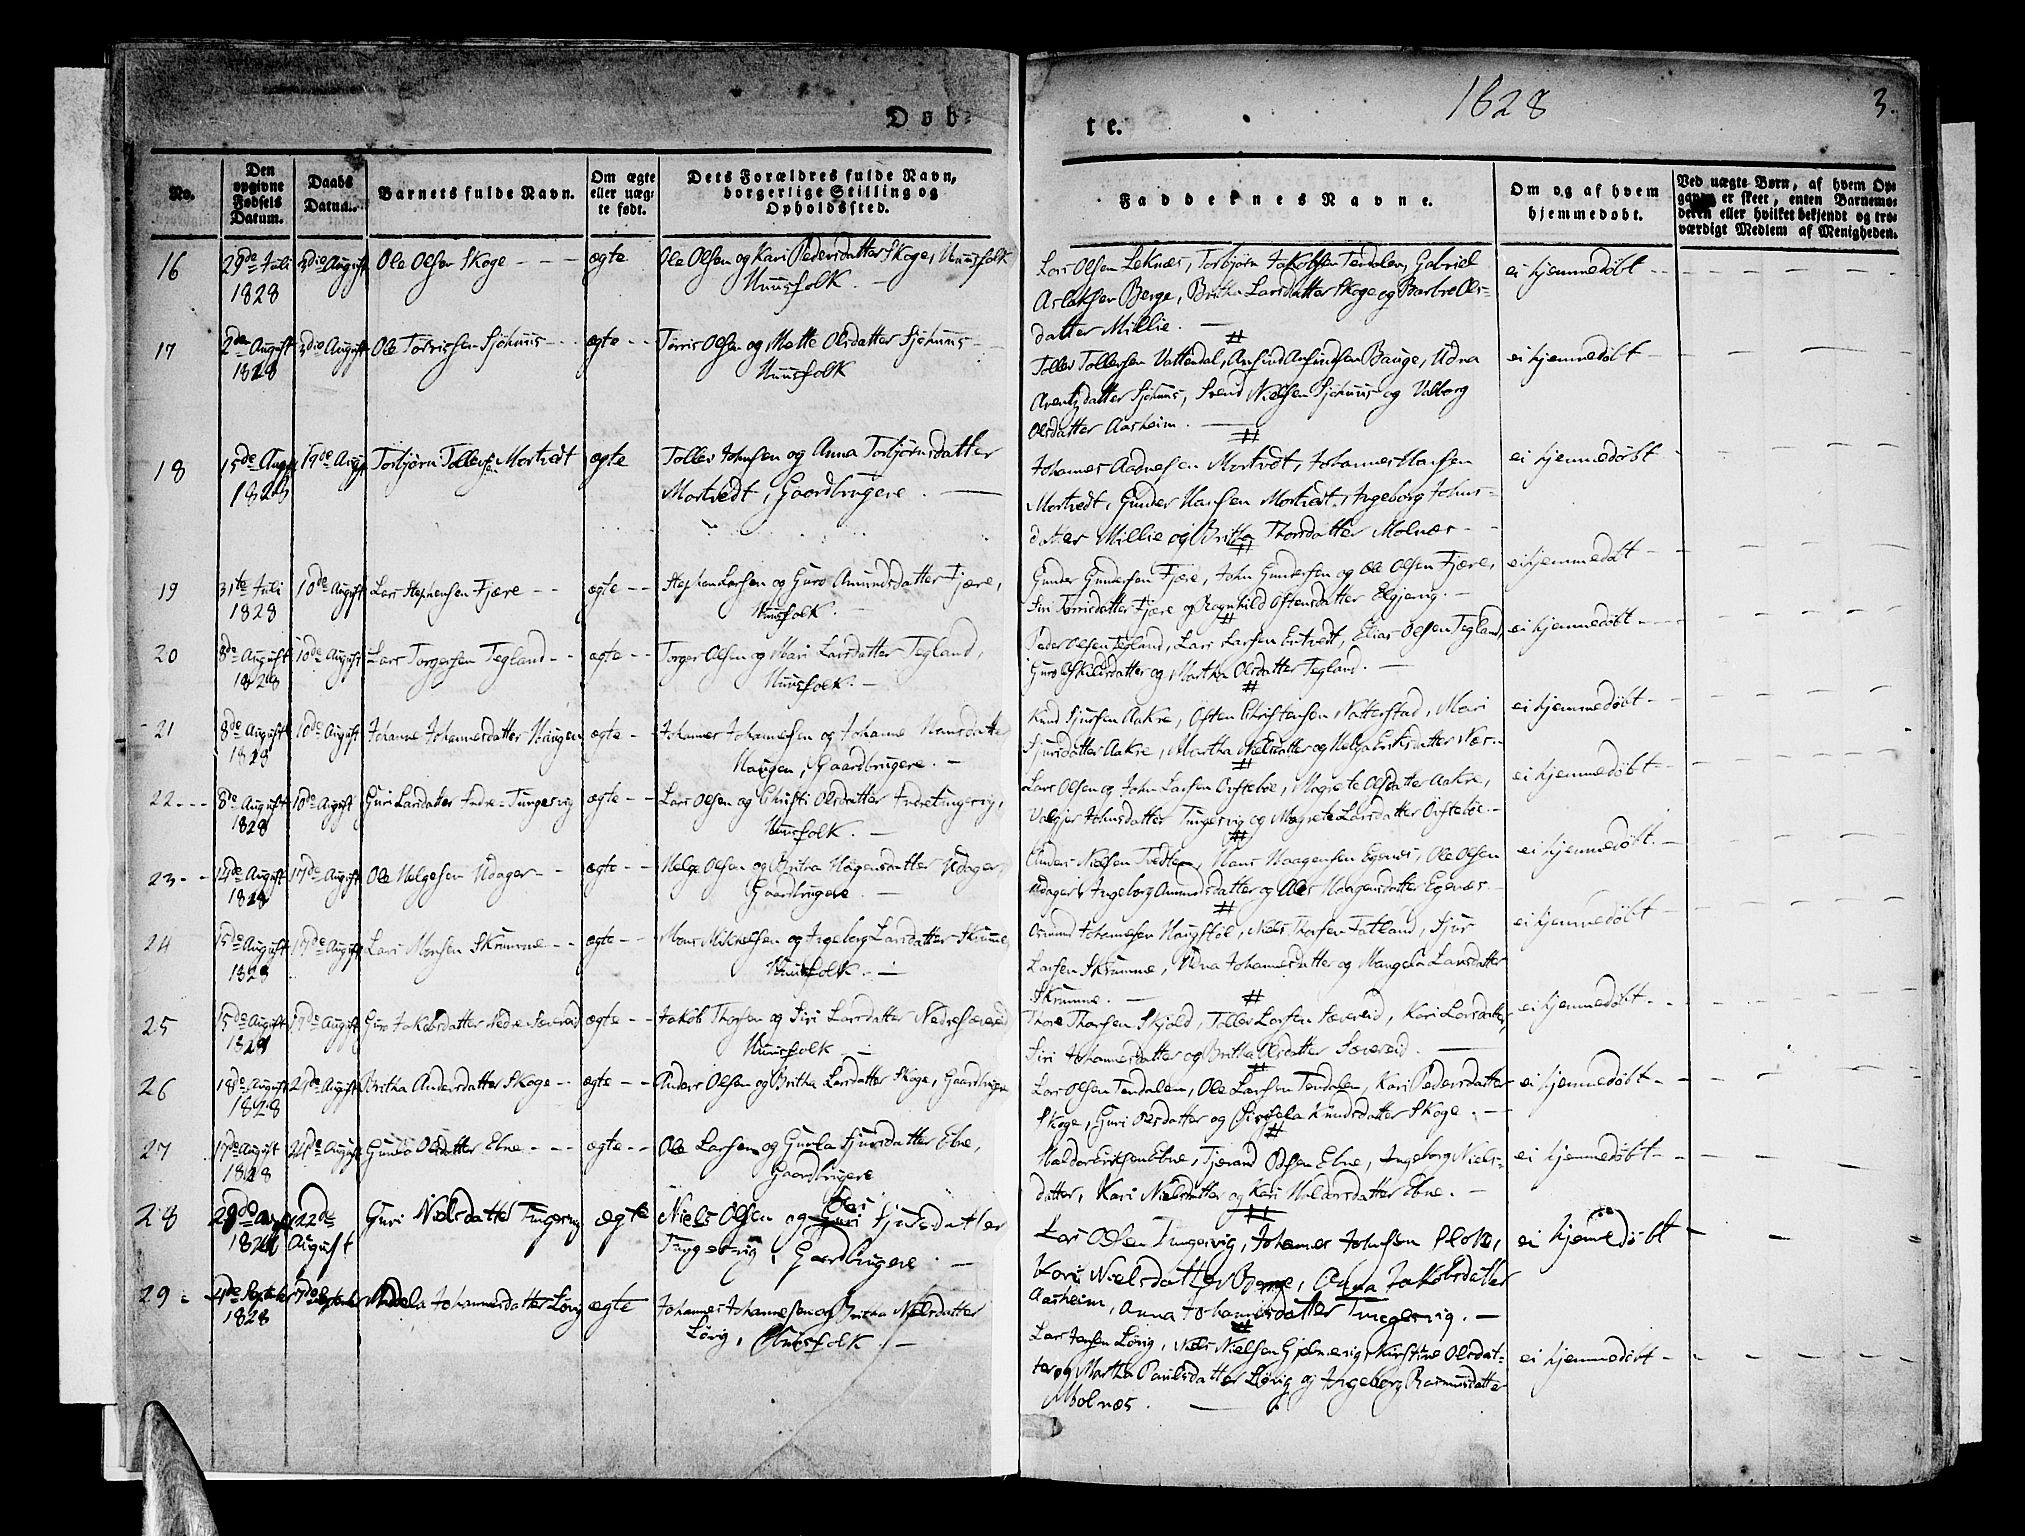 Døb-
te.
1828
3.
No.
Den opgivne Fødsels Datum.
Daabs Datum.
Barnets fulde Navn.
Om ægte eller uægte født.
Dets Forældres fulde Navn, borgerlige Stilling og Opholdssted.
Faddernes Navne.
Om og af hvem hjemmedøbt.
Ved uægte Børn, af hvem Opgaven er skeet, enten Barnemoderen eller hvilket bekjendt og troværdigt Medlem af Menigheden.
16
29de Juli
1828
3die August
Ole Olsen Skoge
ægte
Ole Olsen og Kari Pedersdatter Skoge, Huusfolk
Huusfolk.
Lars Olsen Leknæs, Torbjørn Jakobsen Tendalen, Gabriel
Aslaksen Berge, Britha Larsdatter Skoge og Barbre Ols-
datter Millie.
ei hjemmedøbt
17
2de August
1828
3die August
Ole Torrissen Sjøhuus
ægte
Torris Olsen og Mette Olsdatter Sjøhuus
Huusfolk
Tollev Tollevsen Vattendal, Amund Amundsen Bauge, Udna
Arentzdatter Sjøhuus, Svend Nielsen Sjøhuus og Valborg
Olsdatter Aasheim.
ei hjemmedøbt
18
15de Aug.
1828
19de Aug.
Torbjørn Tollevsen Mortvedt
ægte
Tollev Johnsen og Anna Torbjørnsdatter
Mortvedt, Gaardbrugere.
Johannes Aadnesen Mortvedt, Johannes Hansen
Mortvedt, Gunder Hansen Mortvedt, Ingeborg Johns-
datter Millie og Britha Thorsdatter Molnæs
ei hjemmedøbt
19
31te Juli
1828
10de August
Lars Stephensen Fjære
ægte
Stephen Larsen og Guro Amundsdatter Fjære,
Huusfolk.
Gunder Gundersen Fjære, John Gundersen og Ole Olsen Fjære,
Siri Torrisdatter Fjære og Ragnhild Ostensdatter
ei hjemmedøbt
20
8de August
1828
10de August
Lars Torgersen Tegland
ægte
Torger Olsen og Mari Larsdatter Tegland,
Huusfolk.
Peder Olsen Tegland, Lars Larsen Entvedt, Elias Olsen Tegland,
Guro Eskildsdatter og Martha Olsdatter Tegland.
ei hjemmedøbt
21
8de August
1828
10de August
Johanne Johannesdatter Haugen
ægte
Johannes Johannesen og Johanne Hansdatter
Haugen, Gaardbrugere.
Knud Sjursen Aakre, Osten Christensen Natterstad, Mari
Sjursdatter Aakre, Martha Nielsdatter og Helga Eriksdatter Næs.
ei hjemmedøbt
22
8de August
1828
10de August
Guri Larsdatter Indre-Tungesvig
ægte
Lars Olsen og Christi Olsdatter Indre Tungesvig,
Huusfolk.
Lars Olsen og John Larsen Østebøe, Magrete Olsdatter Aakre,
Valgjer Johnsdatter Tungesvig og Magrete Larsdatter Østebøe.
ei hjemmedøbt
23
14de August
1828
17de August
Ole Helgesen Udager
ægte
Helge Olsen og Britha Haagensdatter Udager,
Gaardbrugere.
Anders Nielsen Tvedten, Hans Haagensen Egenæs, Ole Olsen
Udager, Ingeborg Amundsdatter og Haagensdatter Egenæs.
ei hjemmedøbt.
24
15de August
1828
17de August
Lars Monsen Skrumme
ægte
Mons Mikkelsen og Ingeborg Larsdatter Skrumme
Huusfolk.
Osmund Johannesen Haugstøl, Niels Thorsen Fatland, Sjur
Larsen Skrumme, Udna Johannesdatter og Mangela Larsdatter
Skrumme.
ei hjemmedøbt
25
15de August
1828
17de August
Guro Jakobsdatter Nedre Sævereid
ægte
Jakob Thorsen og Siri Larsdatter Nedre Sævereid
Huusfolk.
Thore Thorsen Skjold, Tollev Larsen Sævereid, Kari Larsdatter,
Siri Johannesdatter og Britha Olsdatter Sævereid.
ei hjemmedøbt
26
18de August
1828
24de August
Britha Andersdatter Skoge
ægte
Anders Olsen og Britha Larsdatter Skoge, Gaardbrugere
Lars Olsen Tendalen, Ole Larsen Tendalen, Kari Pedersdatter
Skoge, Guri Olsdatter og Sissela Knudsdatter Skoge.
ei hjemmedøbt
27
17de August
1828
24de August
Gunla Olsdatter Ebne
ægte
Ole Larsen og Gunla Sjursdatter Ebne,
Gaardbrugere
Haldor Eriksen Ebne, Tjerand Olsen Ebne, Ingeborg Niels-
datter, Kari Nielsdatter og Kari Haldorsdatter Ebne.
ei hjemmedøbt
28
August
Guri Nielsdatter Tungesvig
ægte
Niels Olsen og Sjursdatter
Tungesvig, Gaardbrugere.
Lars Olsen Tungesvig, Johannes Johnsen
Kari Nielsdatter, Anna Jakobsdatter
Aasheim, Anna Johannesdatter Tungesvig.
ei hjemedøbt
29
4de September
1828
7de September
Johannesdatter Lørig
ægte
Johannes Johannesen og Britha Nielsdatter
Lørig, Huusfolk.
Lars Jensen Lørig, Niels Nielsen Gjelmervig, Kirstine Olsdat-
ter og Martha Paulsdatter Lørig og Ingeborg Rasmusdatter
Molnæs.
ei hjemmedøbt